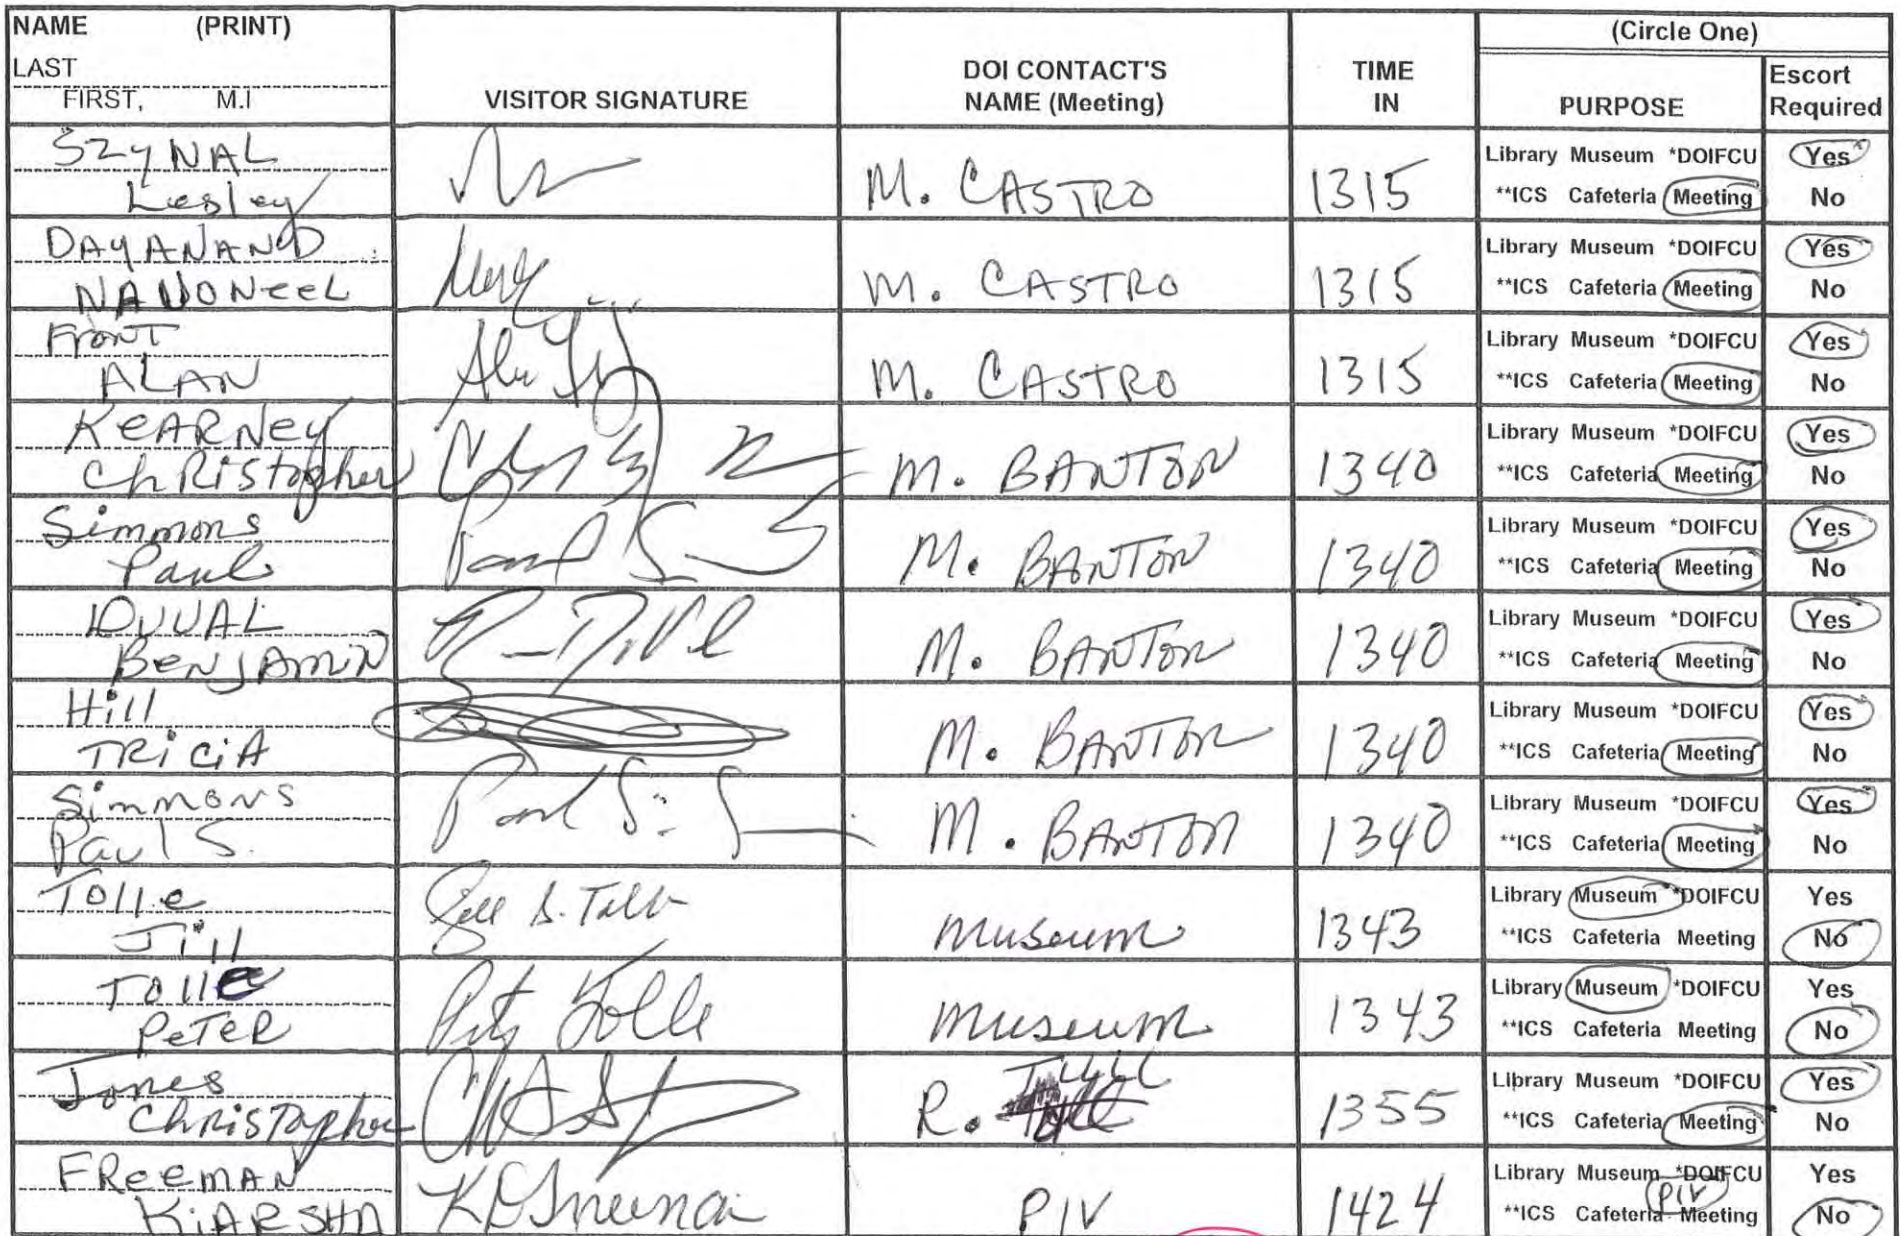 NAME (PRINT)
LAST
FIRST, M.I
VISITOR SIGNATURE
DOI CONTACT'S
NAME (Meeting)
TIME
IN
(Circle One)
PURPOSE
Escort
Required
SZYNAL
Lesley
M. CASTRO
1315
Library Museum *DOIFCU
**ICS Cafeteria Meeting
Yes
No
DAYANAND
NANDNeeL
M. CASTRO
1315
Library Museum *DOIFCU
**ICS Cafeteria Meeting
Yes
No
FronT
ALAN
M. CASTRO
1315
Library Museum *DOIFCU
**ICS Cafeteria Meeting
Yes
No
KeARNey
ChRistopher
M. BANTON
1340
Library Museum *DOIFCU
**ICS Cafeteria Meeting
Yes
No
Simmons
Paul
M. BANTON
1340
Library Museum *DOIFCU
**ICS Cafeteria Meeting
Yes
No
DUVAL
BeNJAMiN
M. BANTON
1340
Library Museum *DOIFCU
**ICS Cafeteria Meeting
Yes
No
Hill
TRiCiA
M. BANTON
1340
Library Museum *DOIFCU
**ICS Cafeteria Meeting
Yes
No
Simmons
Paul S.
M. BANTON
1340
Library Museum *DOIFCU
**ICS Cafeteria Meeting
Yes
No
Tolle
Jill
Jill S. Tolle
museum
1343
Library Museum *DOIFCU
**ICS Cafeteria Meeting
Yes
No
Tolle
PeTeR
Pete Tolle
museum
1343
Library Museum *DOIFCU
**ICS Cafeteria Meeting
Yes
No
Jones
ChRisTopher
R.
1355
Library Museum *DOIFCU
**ICS Cafeteria Meeting
Yes
No
FReeMAN
KiARSHA
PIV
1424
Library Museum *DOIFCU
PIV
**ICS Cafeteria Meeting
Yes
No